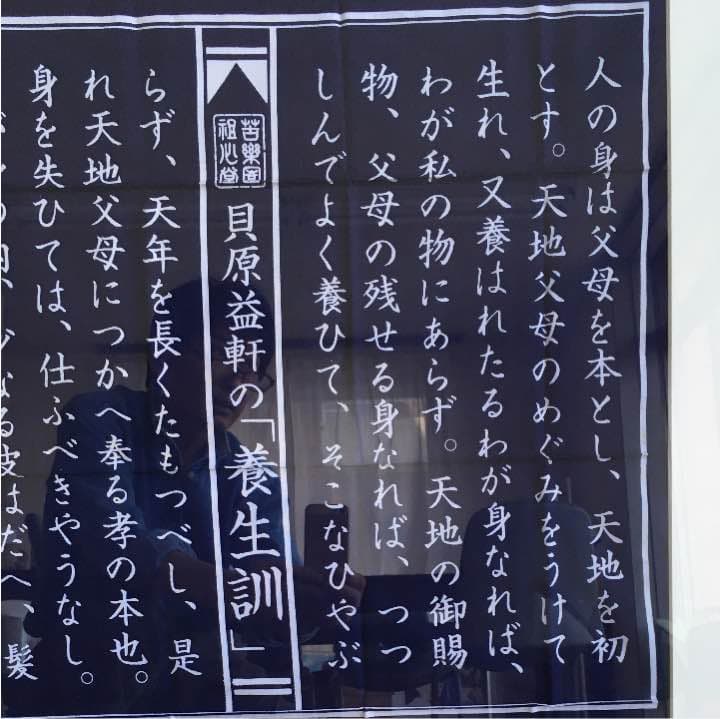 人の身は父母を本とし、天地を初
とす。天地父母のめぐみをうけて
生れ、又養はれたるわが身なれば、
わが私の物にあらず。天地の御賜
物、父母の残せる身なれば、つつ
しんでよく養ひて、そこなひやぶ
貝原益軒の「養生訓」
らず、天年を長くたもつべし、是
れ天地父母につかへ奉る孝の本也。
身を失ひては、仕ふべきやうなし。